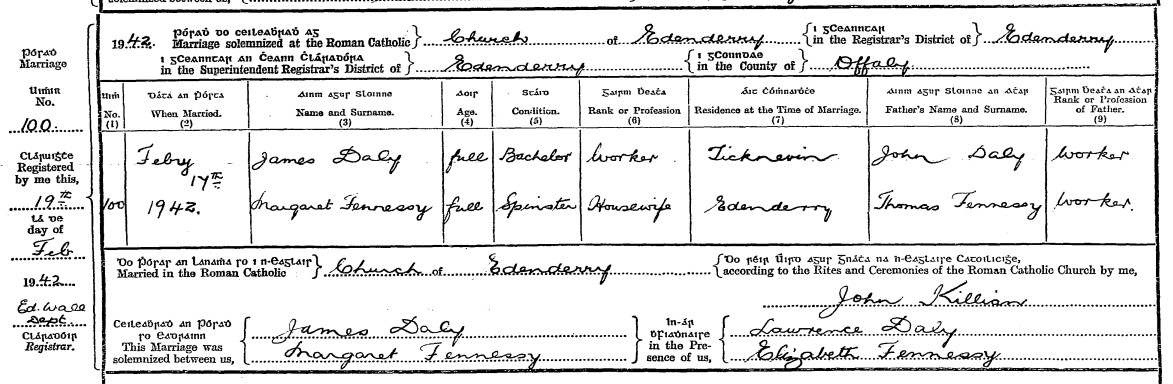 pórad do ceileabrad ag
1942. Marriage solemnized at the Roman Catholic } Church of Edenderry { i gceanntar in the Registrar's District of } Edenderry
i gceanntar an Ceann Cláradóra
in the Superintendent Registrar's District of } Edenderry { i gconndae in the County of } Offaly
Pórad
Marriage
Uimir
No.
100.
Cláruigte
Registered
by me this,
19th
lá de
day of
Feb
1942
Ed. Wall
Dept
Cláradóir
Registrar.
Uimir No. (1) | Dáta an Pórta When Married. (2) | Ainm agus Sloinne Name and Surname. (3) | Aois Age. (4) | Stáid Condition. (5) | Gairm Beata Rank or Profession (6) | Áit Comnuide Residence at the Time of Marriage. (7) | Ainm agus Sloinne an Atar Father's Name and Surname. (8) | Gairm Beata an Atar Rank or Profession of Father. (9)
Feby 17th James Daly full Bachelor Worker Ticknevin John Daly Worker
100 1942. Margaret Fennessy full Spinster Housewife Edenderry Thomas Fennessy Worker.
Do pórad an lánama so i n-eaglais
Married in the Roman Catholic } Church of Edenderry { Do réir Úird agus Gnáta na h-Eaglaise Catoilicige, according to the Rites and Ceremonies of the Roman Catholic Church by me,
John Killian
Ceileabrad an pórad
so eadrainn
This Marriage was
solemnized between us,
James Daly
Margaret Fennessy
in the Presence of us,
Lawrence Daly
Elizabeth Fennessy